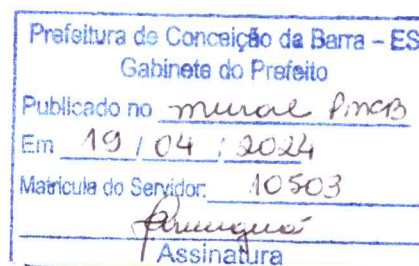 Prefeitura de Conceição da Barra - ES
Gabinete do Prefeito
Publicado no mural PMCB
Em 19 / 04 / 2024
Matricula do Servidor: 10503
Assinatura